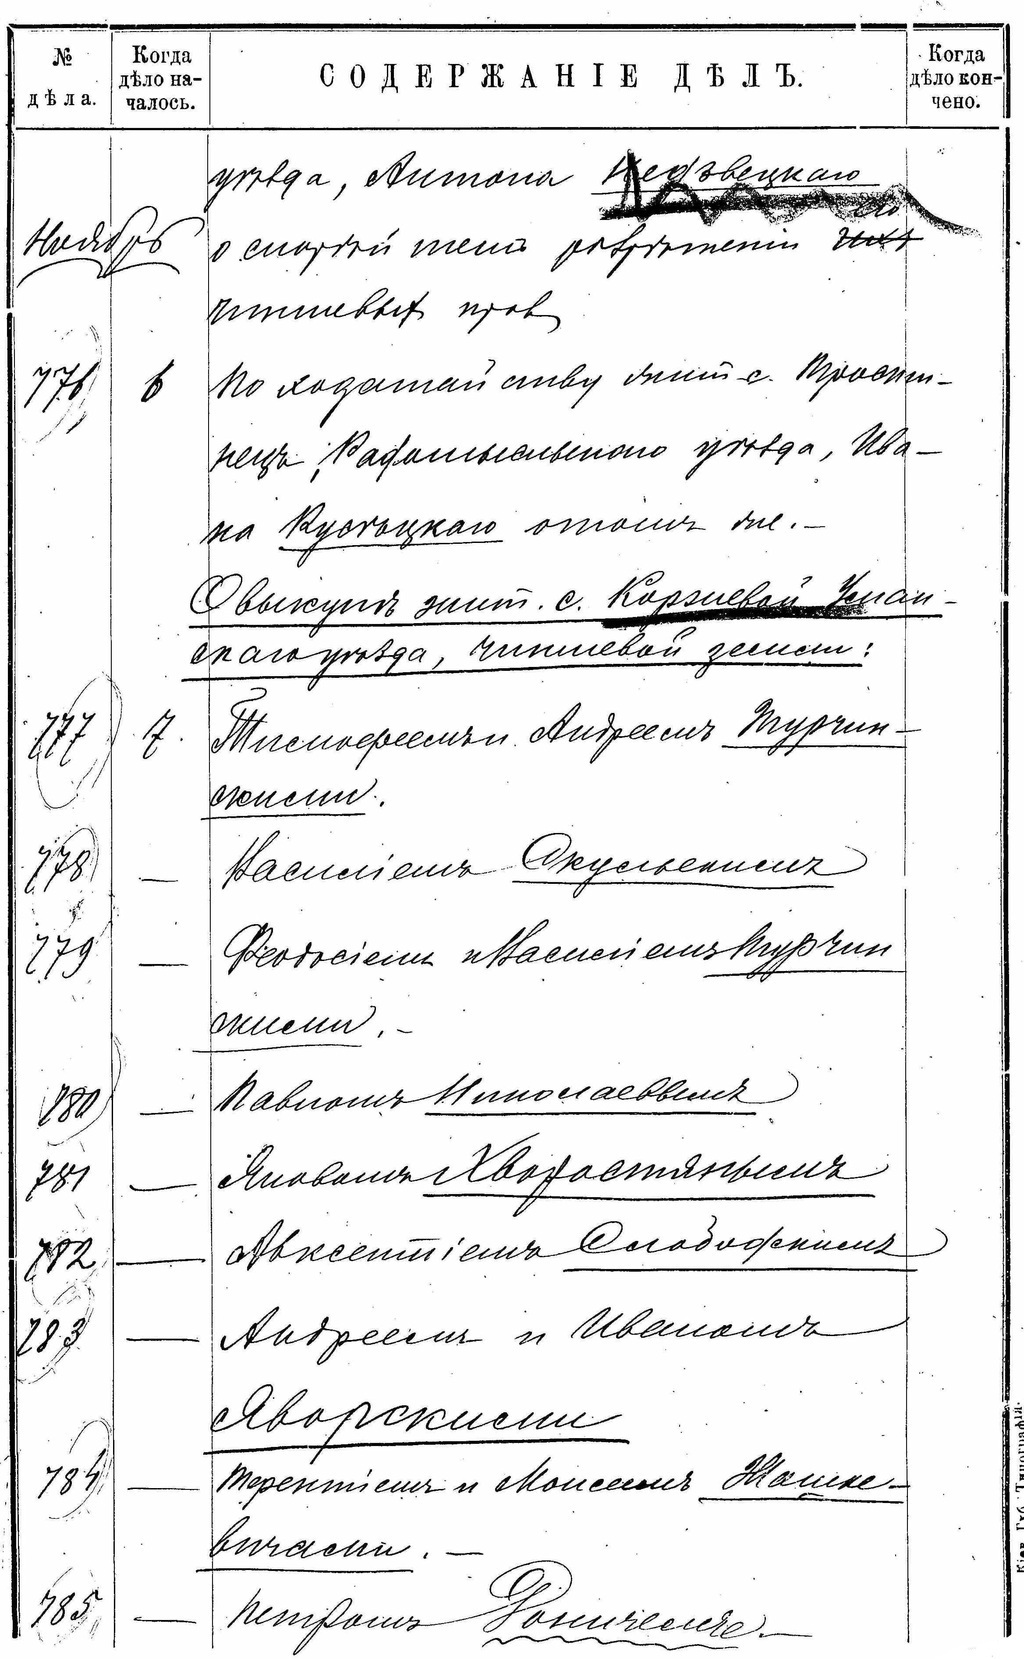 № дѣла.
Когда дѣло на-
чалось.
СОДЕРЖАНІЕ ДѢЛЪ.
Когда дѣло кон-
чено.
уѣзда, Антона Недзвецкаго
Ноябрь
о скорѣйшемъ разрѣшеніи его
чиншевыхъ правъ
776 6 По ходатайству жит. с. Тростя-
нецъ, Радомысльскаго уѣзда, Ива-
на Кустоцкаго о томъ же.—
О выкупѣ жит. с. Коржевой Уман-
скаго уѣзда, чиншевой земли:
777 7. Тимофеемъ и Андреемъ Турчин-
скими.
778 — Василіемъ
779 — Феодосіемъ и Василіемъ Турчин
скими.—
780 — Павломъ Николаевымъ
781 — Яковомъ Хворостянымъ
782 — Авксентіемъ Слободскимъ
783 — Андреемъ и Иваномъ
Яворскими
784 — Терентіемъ и Моисеемъ Жашке-
вичами.—
785 — Петромъ
Кіев. Губ. Типографія.